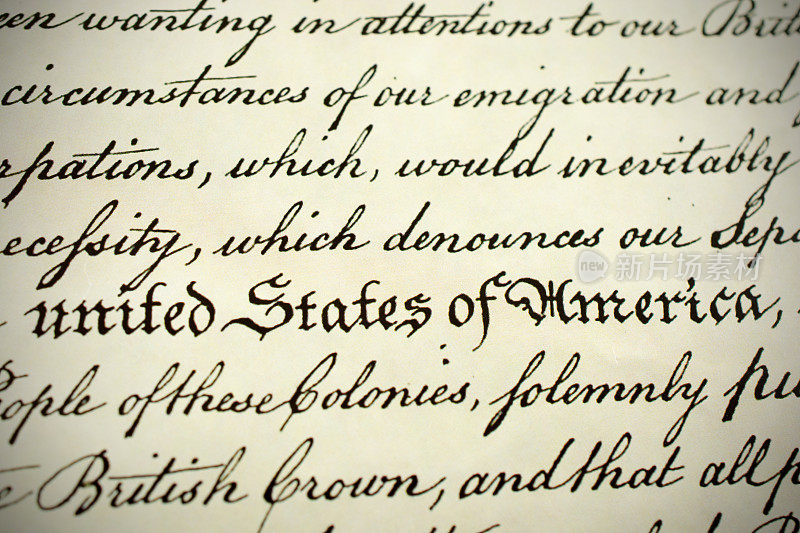 een wanting in attentions to our Brit
circumstances of our emigration and
rpations, which, would inevitably
eceſsity, which denounces our Sepa
united States of America,
People of these Colonies, solemnly pu
e British Crown, and that all p
new 新片素材